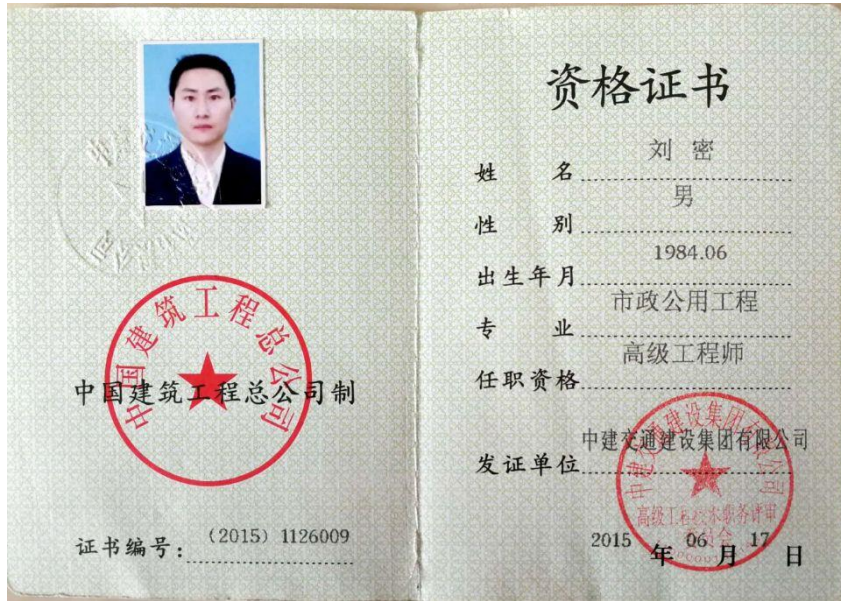 中国建筑工程总公司
中国建筑工程总公司制
证书编号：（2015）1126009
资格证书
姓 名 刘 密
性 别 男
出生年月 1984.06
专 业 市政公用工程
任职资格 高级工程师
发证单位 中建交通建设集团有限公司
中建交通建设集团有限公司
高级工程技术职务评审
委员会
2015 年 06 月 17 日